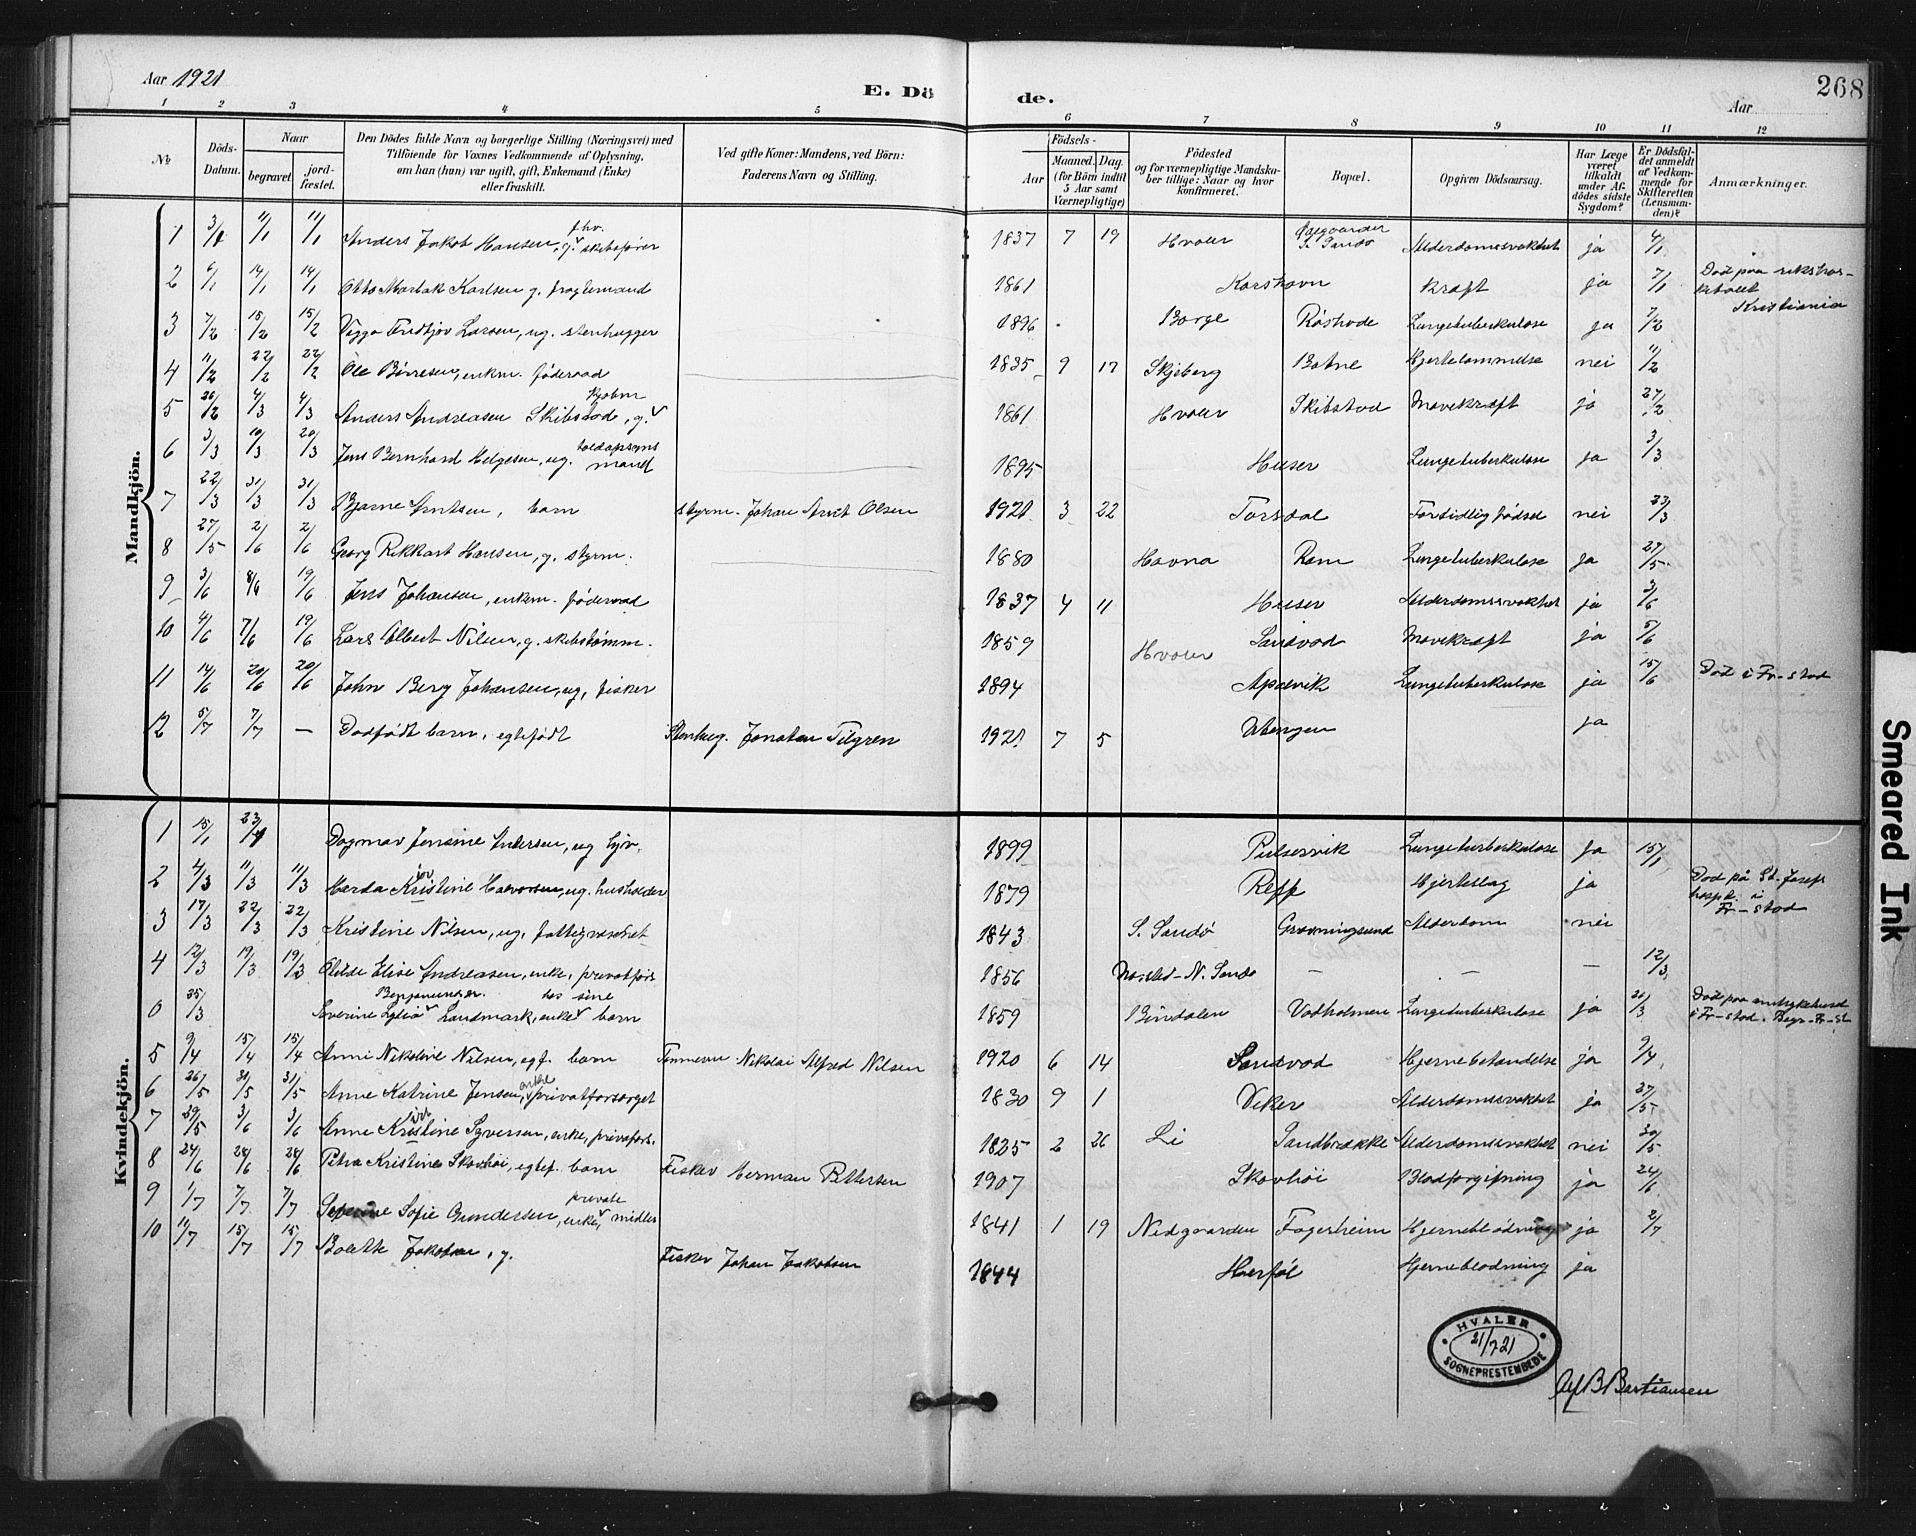 Aar 1921
E. Dö
de.
Aar
268
1 2 3 4 5 6 7 8 9 10 11 12
№
Döds-
Datum.
Naar
begravet
jord-
fæstet.
Den Dödes fulde Navn og borgerlige Stilling (Næringsvei) med
Tilföiende for Voxnes Vedkommende af Oplysning,
om han (hun) var ugift, gift, Enkemand (Enke)
eller fraskilt.
Ved gifte Koner: Mandens, ved Börn:
Faderens Navn og Stilling.
Födsels-
Aar
Maaned. Dag.
(for Börn indtil
5 Aar samt
Værnepligtige)
Födested
og for værnepligtige Mandska-
ber tillige: Naar og hvor
konfirmeret.
Bopæl.
Opgiven Dödsaarsag.
Har Læge
været
tilkaldt
under Af-
dödes sidste
Sygdom?
Er Dödsfal-
det anmeldt
af Vedkom-
mende for
Skifteretten
(Lensman-
den)?
Anmærkninger.
Mandkjön.
1 3/1 11/1 11/1 Anders Jakob Hansen, g. fhv. skibsfører 1837 7 19 Hvaler S. Sandø Alderdomssvakhet ja 4/1
2 6/1 14/1 14/1 Otto Karlsen g. 1861 Korshavn kræft ja 7/1 Død paa rikshos-
pitalet
Kristiania
3 7/2 15/2 15/2 Viggo Fridtjov Larsen, ug. stenhugger 1896 Borge Røshode Lungetuberkulose ja 7/2
4 11/2 22/2 22/2 Ole Børresen, enkm. føderaad 1835 9 17 Skjeberg Botne Hjertelammelse nei 11/2
5 26/2 4/3 4/3 Anders Andreasen Skibstad, g. 1861 Hvaler Skibstad Mavekræft ja 27/2
6 3/3 10/3 20/3 Jens Bernhard Helgesen, ug. toldopsyns
mand 1895 Huser Lungetuberkulose ja 3/3
7 22/3 31/3 31/3 Bjarne Arntsen, barn styrm. Johan Arnt Olsen 1921 3 22 Torsdal Fortidlig fødsel nei 23/3
8 27/5 2/6 2/6 Georg Rikkart Hansen, g. styrm. 1880 Havna Rom Lungetuberkulose ja 27/5
9 3/6 8/6 19/6 Jens Johansen, enkem. føderaad 1837 4 11 Huser Alderdomssvakhet ja 3/6
10 4/6 7/6 19/6 Lars Albert Nilsen, g. skibstømm. 1859 Hvaler Sandvad Mavekræft ja 5/6
11 14/6 20/6 20/6 John Berg Johansen, ug, fisker 1894 Apalvik Lungetuberkulose ja 15/6 Død i Fr-stad
12 5/7 7/7 — Dødfødt barn, egtefødt Stenhug. Jonatan Tilgren 1921 7 5 Utengen ja
Kvindekjön.
1 15/1 23/4 Dagmar Jensine Andersen, ug 1899 Pulservik Lungetuberkulose ja 15/1
2 4/3 11/3 11/3 Marda Kristine Halvorsen, ug. husholder 1879 Reff Hjerteslag ja Død på St. Josefs
hospt. i
Fr-stad
3 17/3 22/3 22/3 Kristine Nilsen, ug, fattigvæsenet 1843 S. Sandø Gravningsund Alderdom nei
4 12/3 19/3 19/3 Olilde Elise Andreasen, enke, privatfors 1856 N. Sandø — — — 12/3
0 25/3 Severine Lydia Benjaminder. Landmark, enke hos sine barn 1859 Bindalen Vadholmen Lungetuberkulose ja 26/3 Død paa amtsykehuset
i Fr-stad. Begr. Fr-st
5 9/4 15/4 15/4 Anna Nikoline Nilsen, egf. barn Tømmerm Nikolai Alfred Nilsen 1920 6 14 Sandvad Hjernebetændelse ja 9/4
6 26/5 31/5 31/5 Anne Katrine Jensen, enke privatforsørget 1830 9 1 Viker Alderdomssvakhet ja 27/5
7 29/5 3/6 3/6 Anne Kristine Syversen, enke, privafors. 1825 2 26 Li Sandbrække Alderdomssvakhet nei 30/5
8 24/6 28/6 28/6 Petra Kristine Skovhøi, egtef. barn Fisker Herman Pettersen 1907 Skovhöi Blodforgiftning ja 24/6
9 1/7 7/7 7/7 Severine Sofie Gundersen, enke, private midler 1841 1 19 Nedgaarden Fagerheim Hjerneblødning ja 2/7
10 11/7 15/7 15/7 Bolette Jakobsen, g. Fisker Johan Jakobsen 1844 Herføl Hjerneblødning ja
HVALER
21/7 21
SOGNEPRESTEMBEDE
Alf B Bastiansen
Smeared Ink